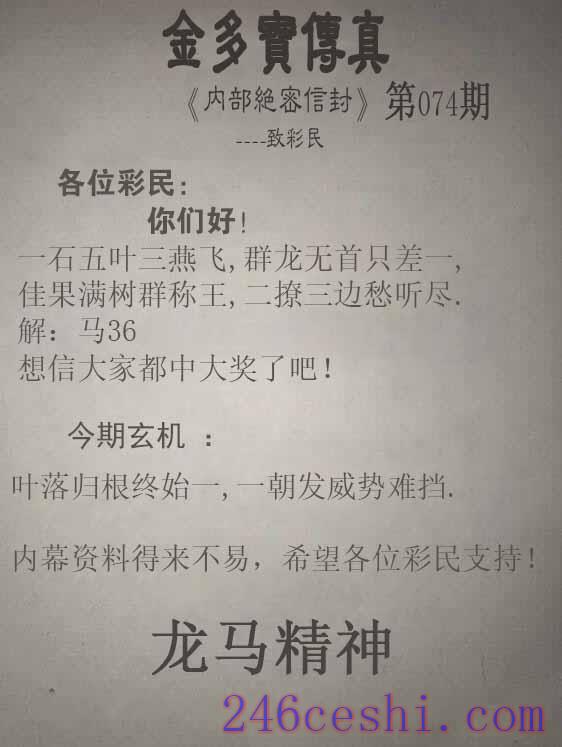 金多寶傳真
《内部絕密信封》第074期
----致彩民
各位彩民:
你们好!
一石五叶三燕飞,群龙无首只差一,
佳果满树群称王,二撩三边愁听尽.
解：马36
想信大家都中大奖了吧!
今期玄机 ：
叶落归根终始一,一朝发威势难挡.
内幕资料得来不易，希望各位彩民支持!
龙马精神
246ceshi.com